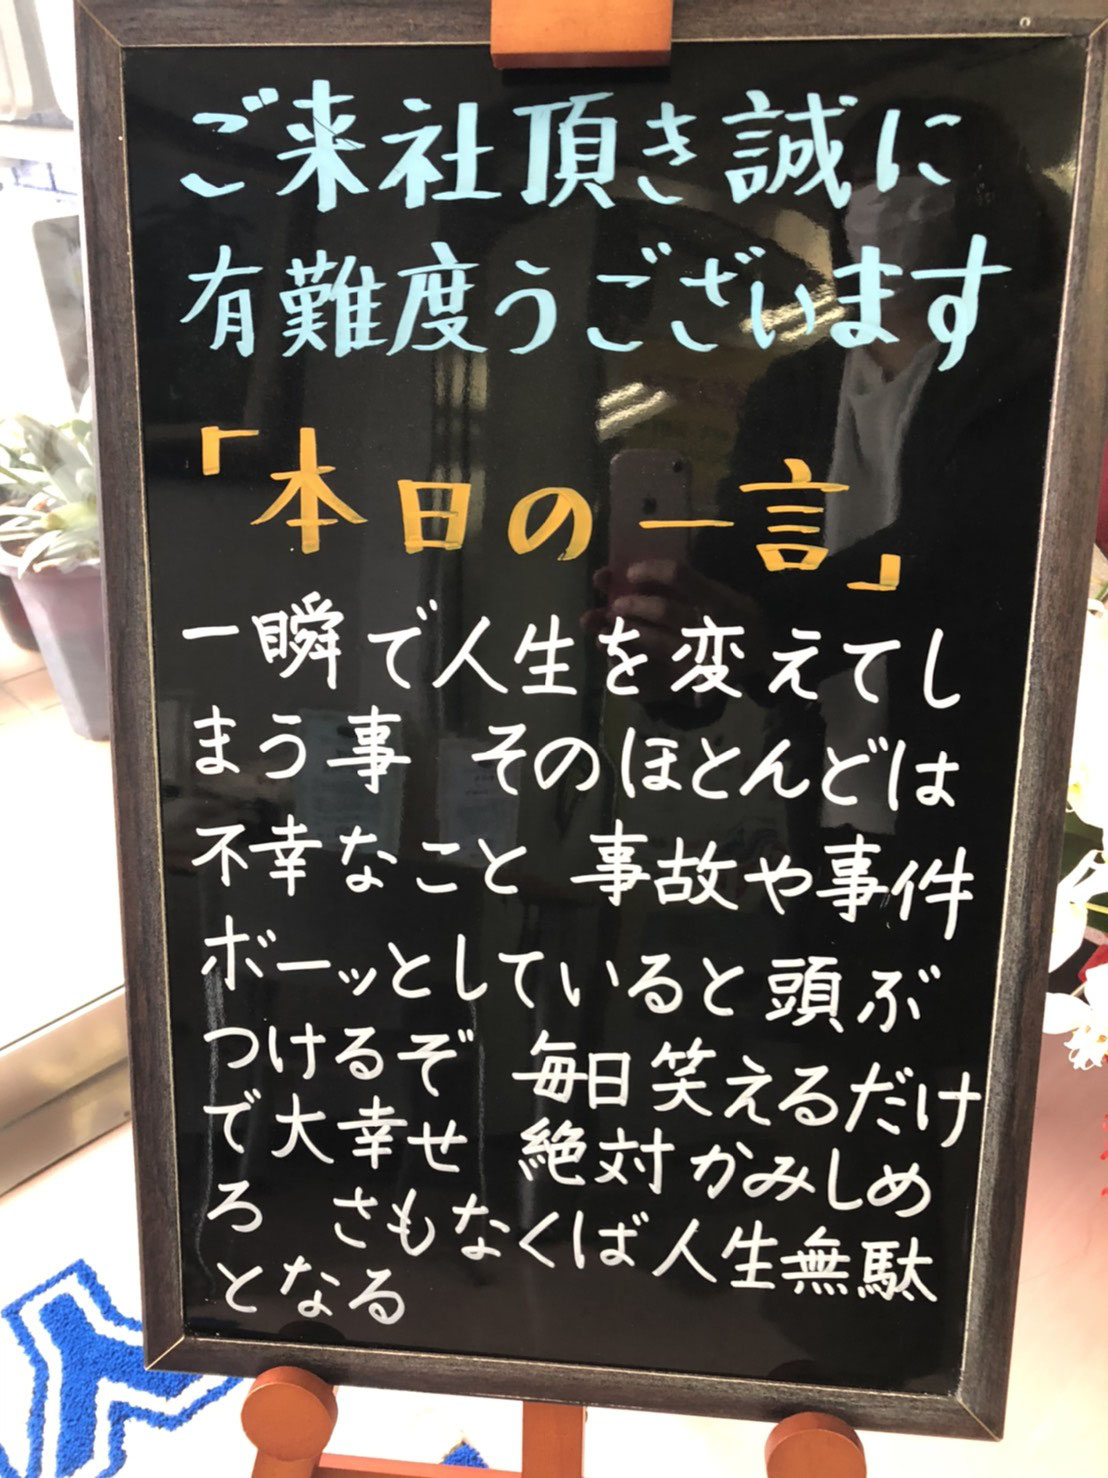 ご来社頂き誠に
有難度うございます
「本日の一言」
一瞬で人生を変えてし
まう事 そのほとんどは
不幸なこと 事故や事件
ボーッとしていると頭ぶ
つけるぞ 毎日笑えるだけ
で大幸せ 絶対かみしめ
ろ さもなくば人生無駄
となる